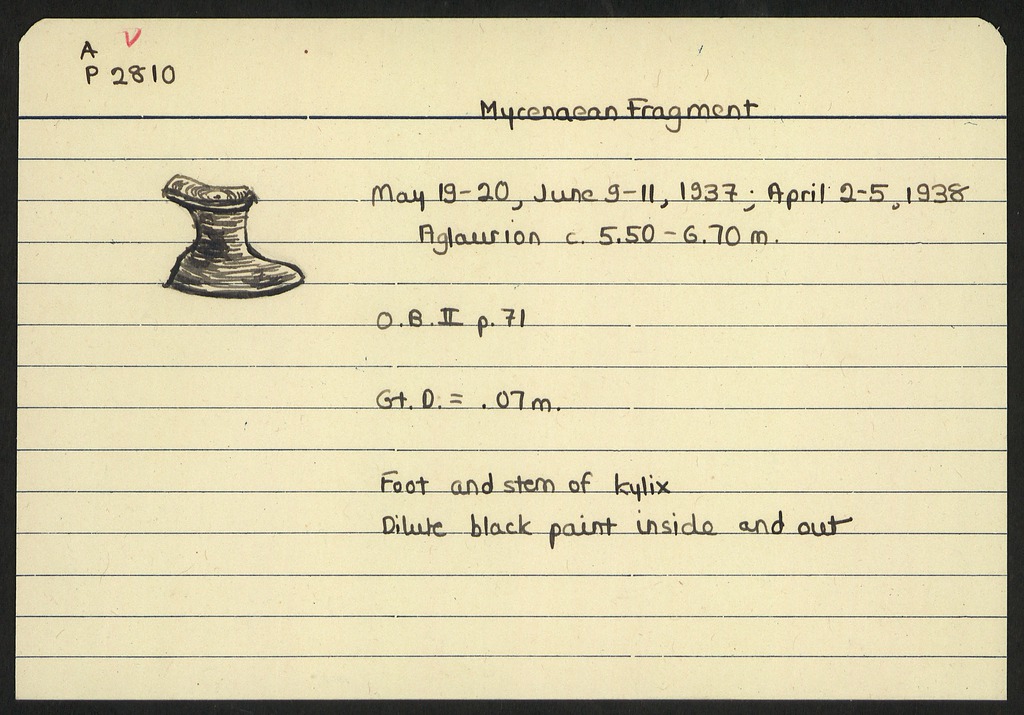 A V
P 2810
Mycenaean Fragment
May 19-20, June 9-11, 1937; April 2-5, 1938
Aglaurion c. 5.50 - 6.70 m.
O.B. II p. 71
Gt. D. = .07 m.
Foot and stem of kylix
Dilute black paint inside and out